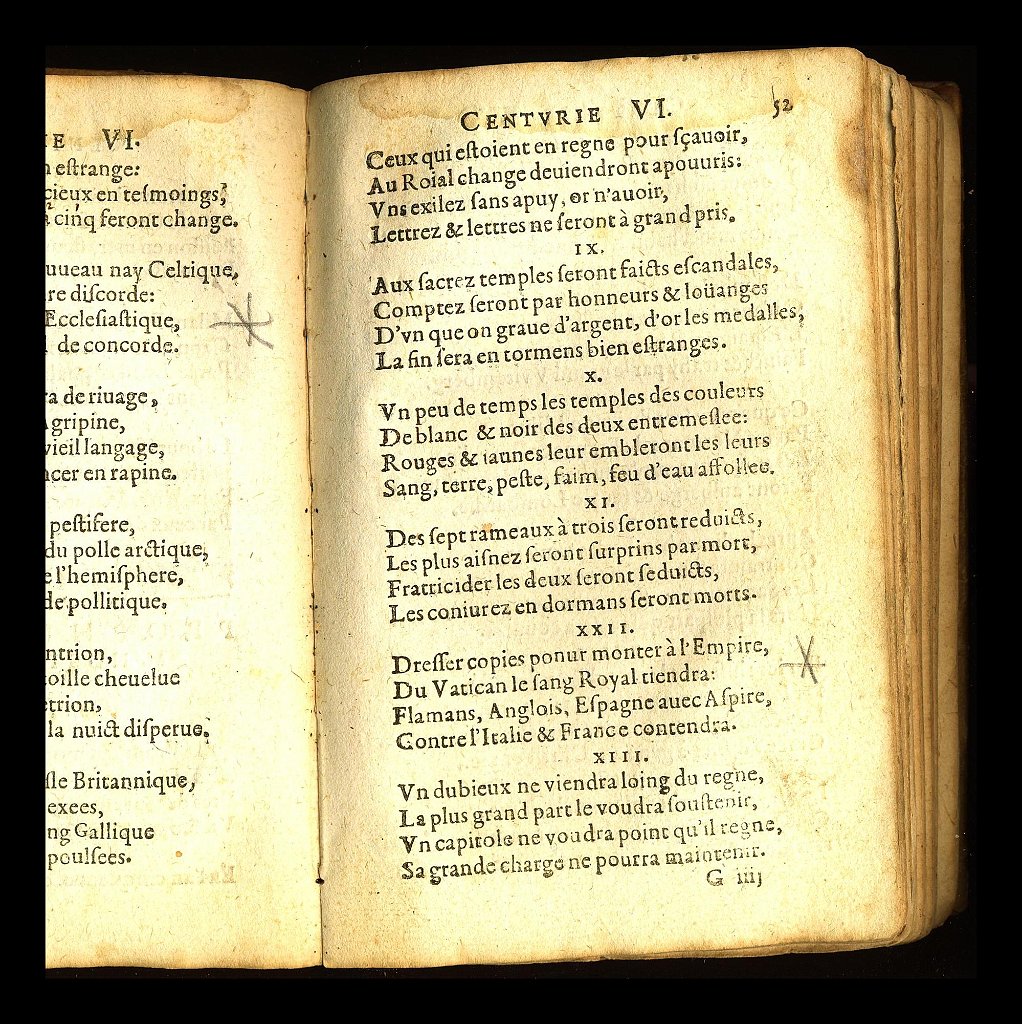 IE VI.
estrange:
cieux en tesmoings,
cinq feront change.
uueau nay Celtique,
re discorde:
Ecclesiastique,
de concorde.
a de riuage,
Agripine,
vieil langage,
ncer en rapine.
pestifere,
du polle arctique,
e l'hemisphere,
de pollitique.
ntrion,
oille cheuelue
etrion,
la nuict disperue.
sle Britannique,
exees,
ng Gallique
poulsees.
CENTVRIE VI. 52
Ceux qui estoient en regne pour sçauoir,
Au Roial change deuiendront apouuris:
Vns exilez sans apuy, or n'auoir,
Lettrez & lettres ne seront à grand pris.
IX.
Aux sacrez temples seront faicts escandales,
Comptez seront par honneurs & loüanges
D'vn que on graue d'argent, d'or les medalles,
La fin sera en tormens bien estranges.
X.
Vn peu de temps les temples des couleurs
De blanc & noir des deux entremeslee:
Rouges & iaunes leur embleront les leurs
Sang, terre, peste, faim, feu d'eau affollee.
XI.
Des sept rameaux à trois seront reduicts,
Les plus aisnez seront surprins par mort,
Fratricider les deux seront seduicts,
Les coniurez en dormans seront morts.
XXII.
Dresser copies ponur monter à l'Empire,
Du Vatican le sang Royal tiendra:
Flamans, Anglois, Espagne auec Aspire,
Contre l'Italie & France contendra.
XIII.
Vn dubieux ne viendra loing du regne,
La plus grand part le voudra soustenir,
Vn capitole ne voudra point qu'il regne,
Sa grande charge ne pourra maintenir.
G iiij